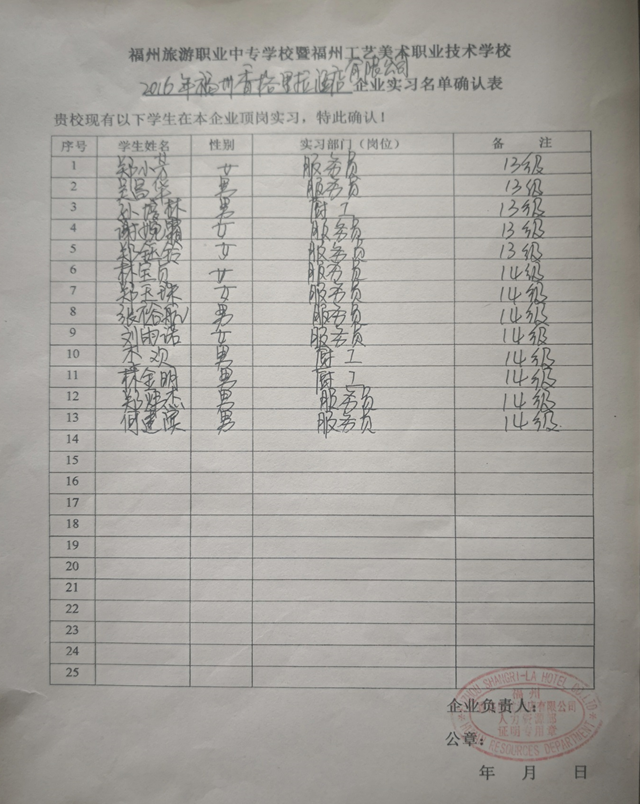 福州旅游职业中专学校暨福州工艺美术职业技术学校
2016年福州香格里拉酒店有限公司企业实习名单确认表
贵校现有以下学生在本企业顶岗实习，特此确认！
序号 学生姓名 性别 实习部门（岗位） 备 注
1 郑小芳 女 服务员 13级
2 吴昌华 男 服务员 13级
3 孙 林 男 厨工 13级
4 谢 霜 女 服务员 13级
5 郑 女 服务员 13级
6 林 女 服务员 14级
7 郑玉珠 女 服务员 14级
8 张裕 男 服务员 14级
9 刘雨诺 女 服务员 14级
10 李欢 男 厨工 14级
11 林金明 男 厨工 14级
12 郑 杰 男 服务员 14级
13 何建 男 服务员 14级
14
15
16
17
18
19
20
21
22
23
24
25
SHANGRI-LA HOTEL CO.,LTD
福州
有限公司
企业负责人：
人力资源部
证明专用章
RESOURCES DEPARTMENT
公章：
年 月 日